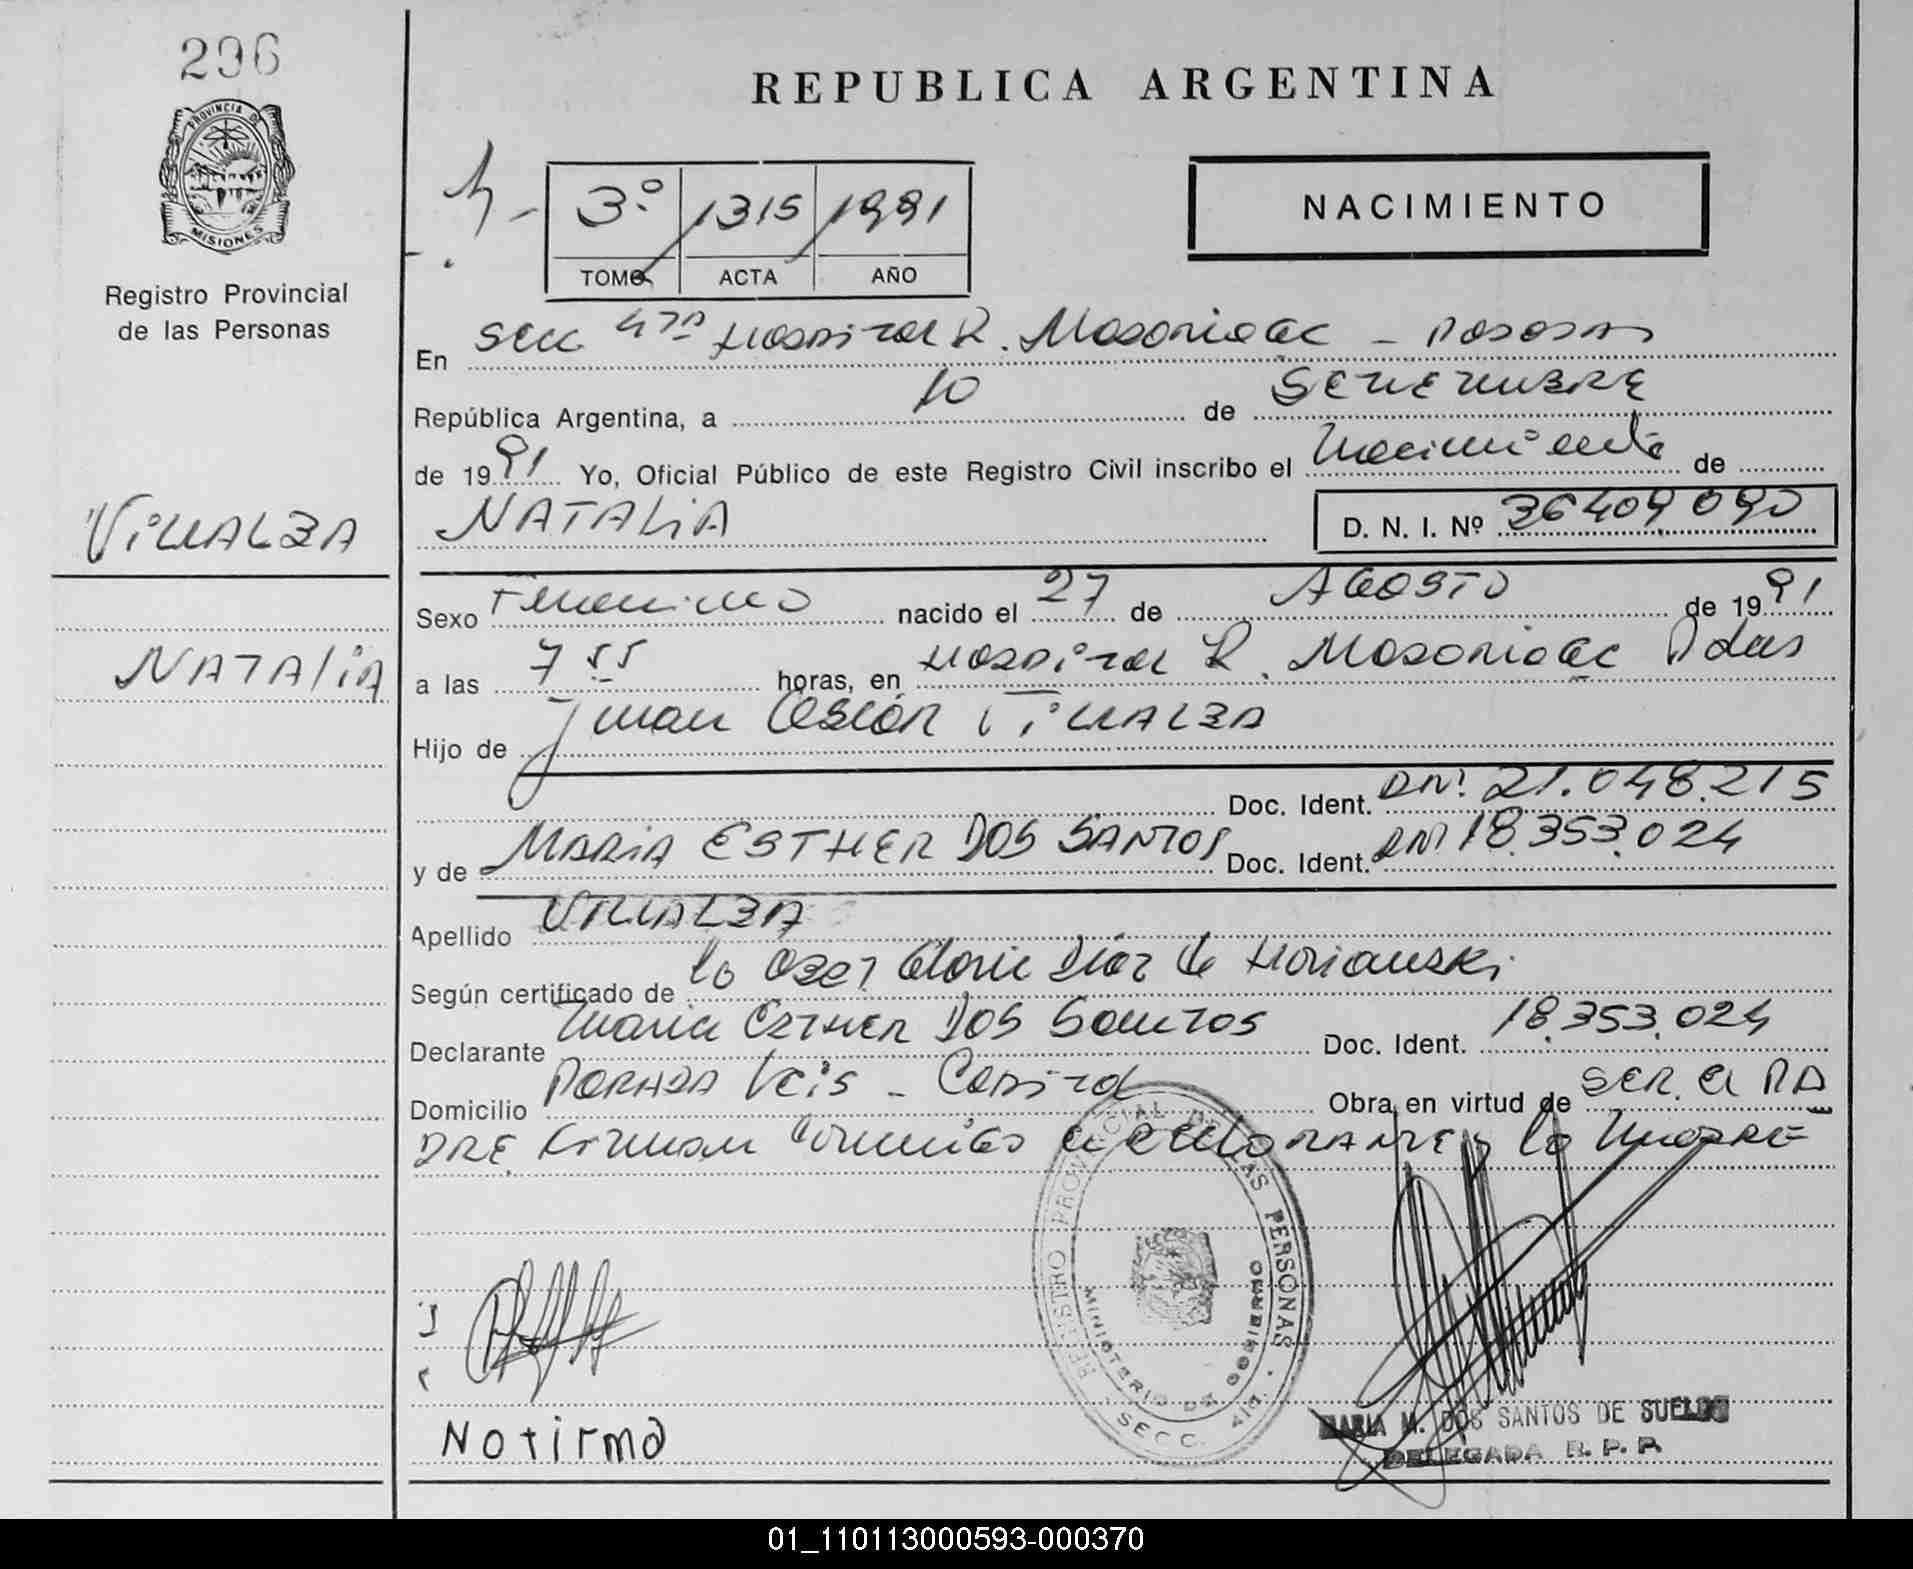 296
PROVINCIA DE
MISIONES
Registro Provincial
de las Personas
REPUBLICA ARGENTINA
3º 1315 1991
TOMO ACTA AÑO
NACIMIENTO
En Secc 4ta Hospital R. Madariaga - Posadas
República Argentina, a 10 de SETIEMBRE
de 1991 Yo, Oficial Público de este Registro Civil inscribo el Nacimiento de
VILLALBA
NATALIA
D. N. I. Nº 36409090
Sexo Femenino nacido el 27 de AGOSTO de 1991
NATALIA
a las 7 55 horas, en Hospital R. Madariaga Pdas
Hijo de Juan VILLALBA
Doc. Ident. DNI. 21.048.215
y de MARIA ESTHER DOS SANTOS Doc. Ident. DNI 18.353.024
Apellido VILLALBA
Según certificado de la Obst Gloria Diaz de
Declarante Maria Esther DOS SANTOS Doc. Ident. 18.353.024
Domicilio - Capital Obra en virtud de SER El PA
DRE Firman el declarante y la MADRE
REGISTRO PROVINCIAL DE LAS PERSONAS
MINISTERIO DE GOBIERNO
SECC.
No firma
MARIA M. DOS SANTOS DE SUELDO
DELEGADA R. P. P.
01_110113000593-000370